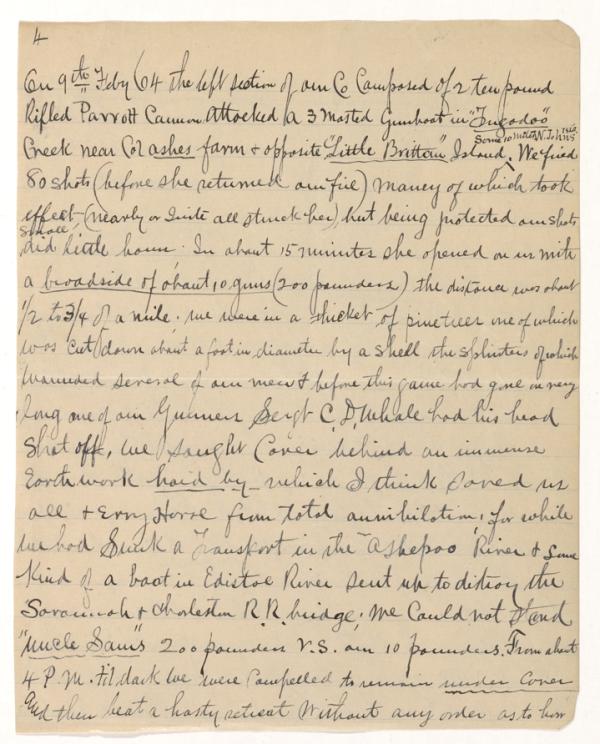 4
On 9th Feby 64 the left section of our Co Composed of 2 ten pound
Rifled Parrott Cannon Attacked a 3 Masted Gunboat in "Tugodoo"
Some 10 miles N. Johns isld.
Creek near Col ashes farm & opposite "Little Britten" Island, We fired
80 shots (before she returned our fire) maney of which took
effect (nearly or Quite all struck her) but being protected our shots
small,
did little harm; In about 15 minutes she opened on us with
a broadside of about 10 guns (200 pounders) the distance was about
1/2 to 3/4 of a mile; we were in a thicket of pinetrees one of which
was cut down about a foot in diameter by a shell the splinters of which
wounded several of our men & before this game had gone on very
long one of our Gunners Sergt C. D, Whale had his head
Shot off, we sought Cover behind an immense
Earth work hard by which I think saved us
all & Evry Horse from total annihilation, for while
we had Sunk a Transport in the "Ashepoo" River & Some
Kind of a boat in Edistoe River sent up to distroy the
Savannah & Charleston R.R. bridge; We Could not Stand
"Uncle Sam's 200 pounders V.S. our 10 pounders. From about
4 P.M. til dark we were Compelled to remain under Cover
And then beat a hasty retreat Without any order as to how